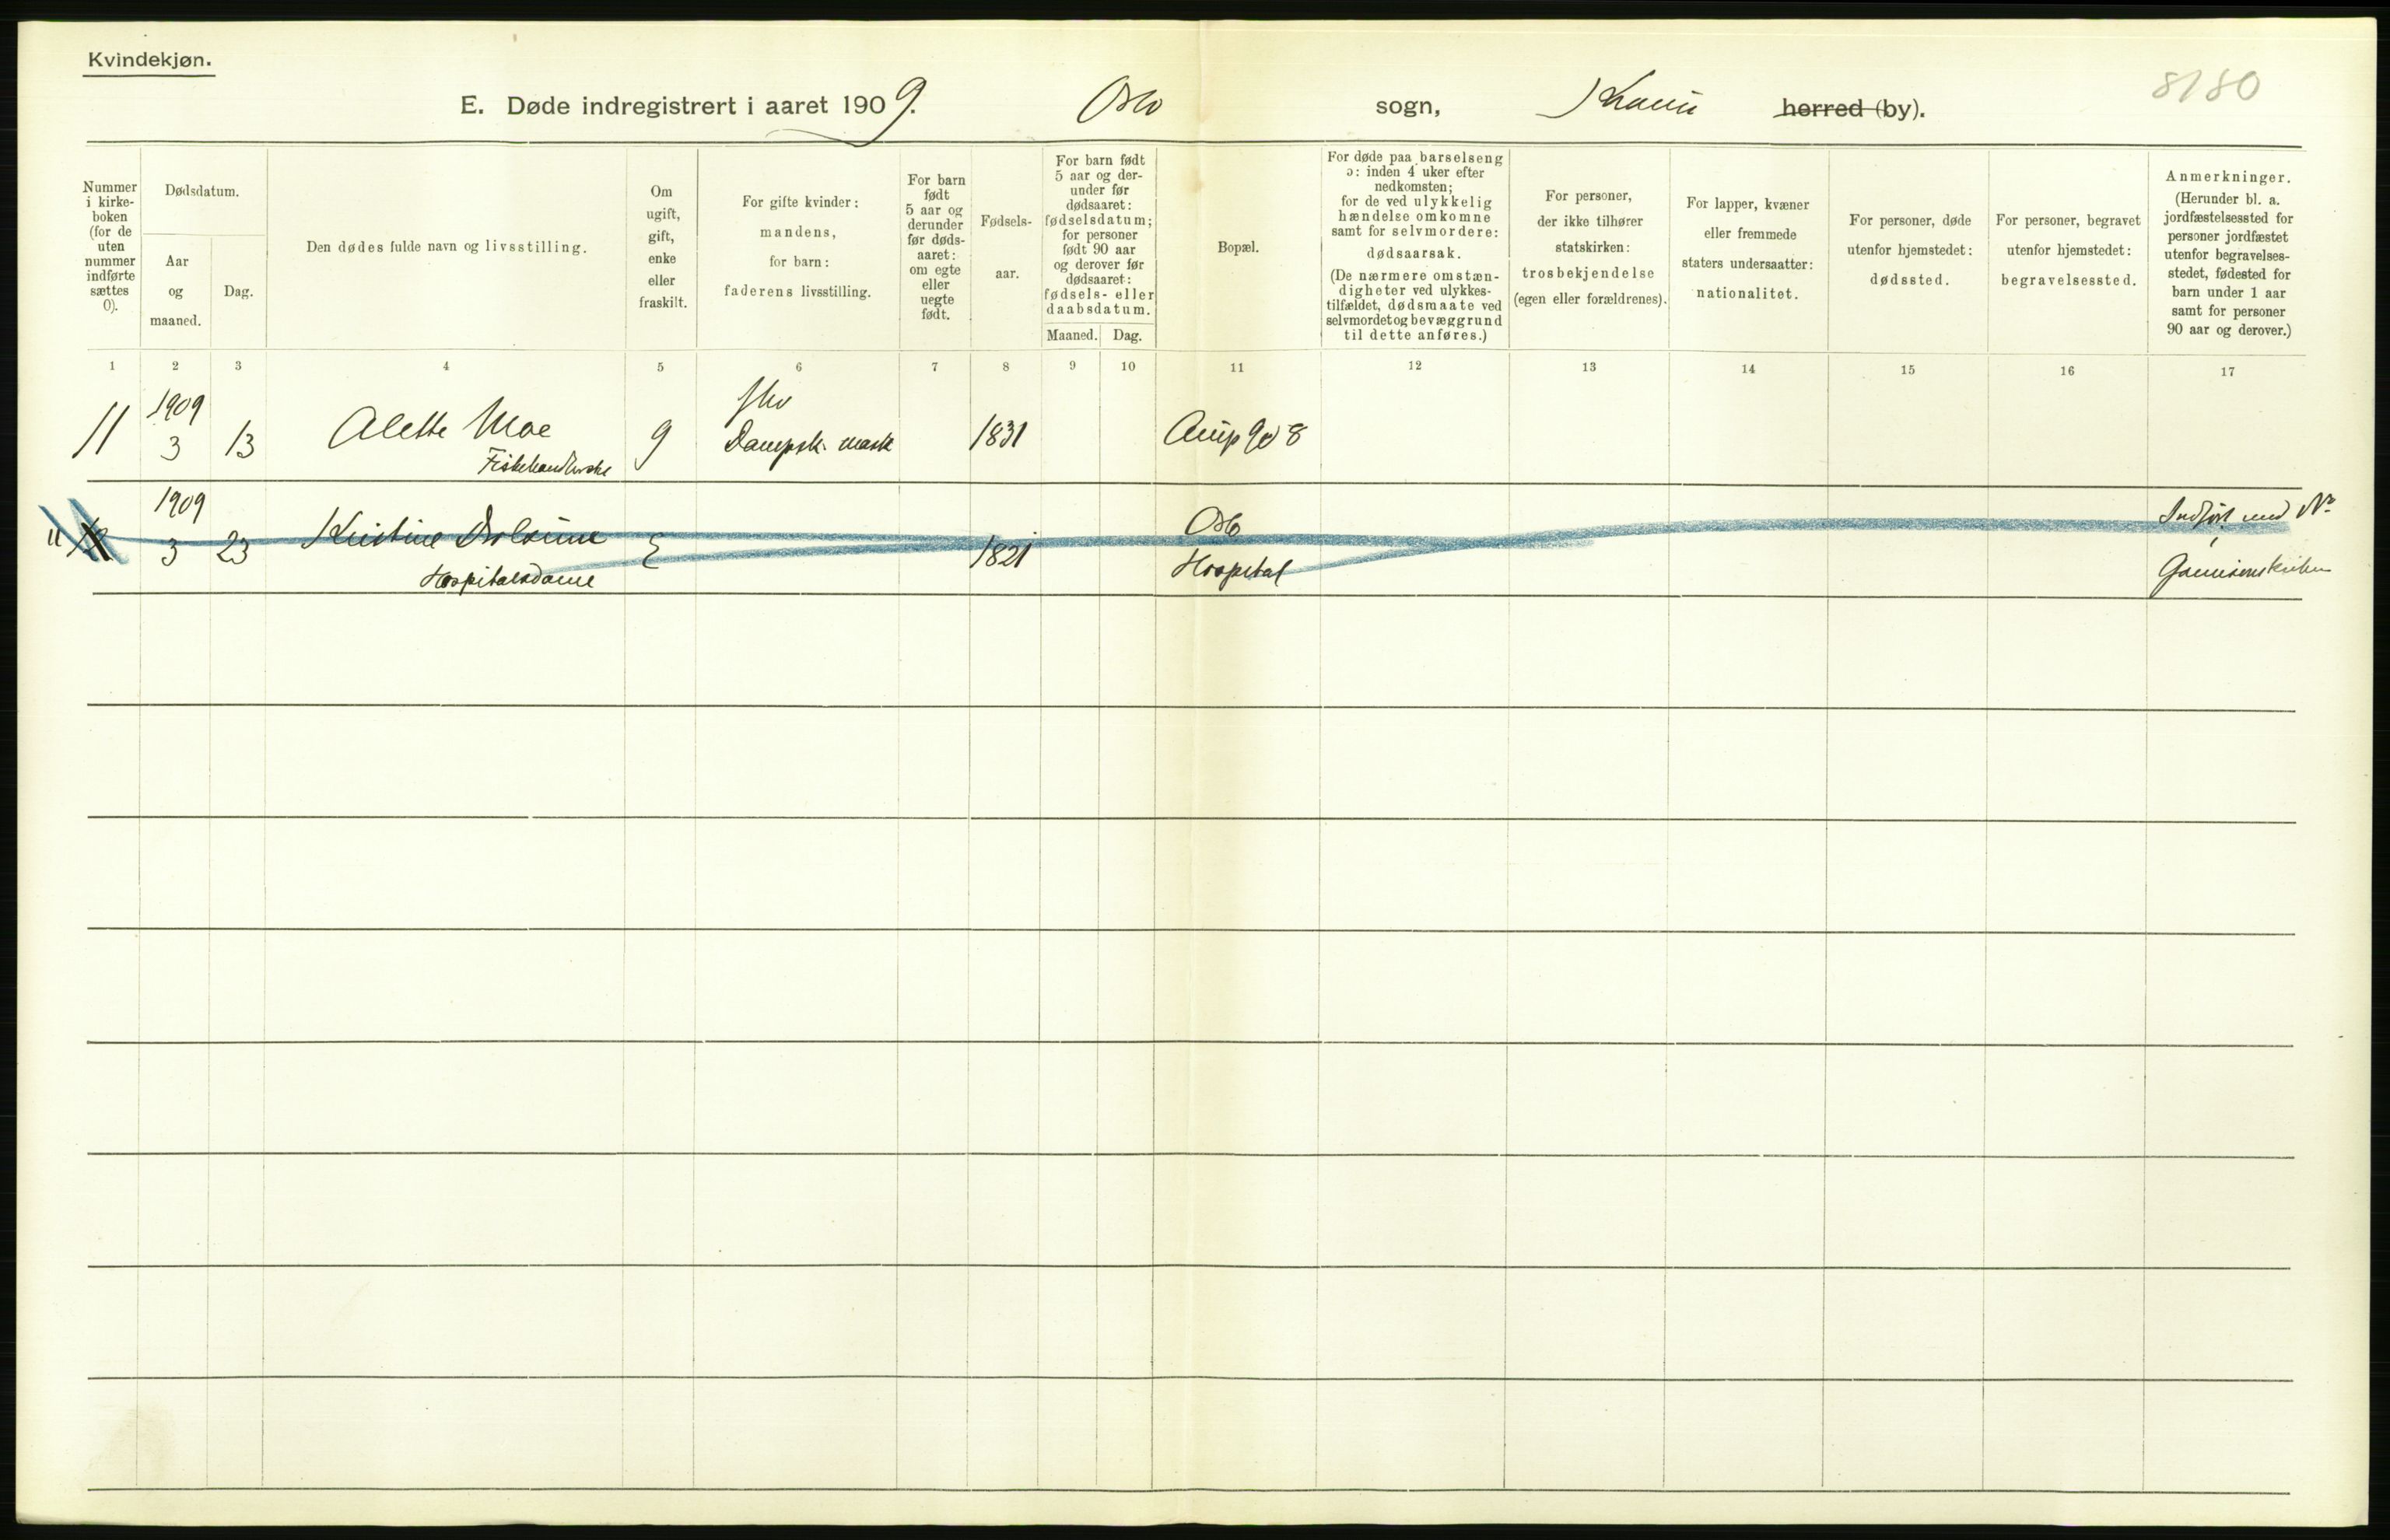 Kvindekjøn.
E. Døde indregistrert i aaret 1909. Oslo sogn, herred (by).
8180
Nummer
i kirke-
boken
(for de
uten
nummer
indførte
sættes
0).
Dødsdatum.
Aar
og
maaned.
Dag.
Den dødes fulde navn og livsstilling.
Om
ugift,
gift,
enke
eller
fraskilt.
For gifte kvinder:
mandens,
for barn:
faderens livsstilling.
For barn
født
5 aar og
derunder
før døds-
aaret:
om egte
eller
uegte
født.
Fødsels-
aar.
For barn født
5 aar og der-
under før
dødsaaret:
fødselsdatum;
for personer
født 90 aar
og derover før
dødsaaret:
fødsels- eller
daabsdatum.
Maaned. Dag.
Bopæl.
For døde paa barselseng
ɔ: inden 4 uker efter
nedkomsten;
for de ved ulykkelig
hændelse omkomne
samt for selvmordere:
dødsaarsak.
(De nærmere omstæn-
digheter ved ulykkes-
tilfældet, dødsmaate ved
selvmordet og bevæggrund
til dette anføres.)
For personer,
der ikke tilhører
statskirken:
trosbekjendelse
(egen eller forældrenes).
For lapper, kvæner
eller fremmede
staters undersaatter:
nationalitet.
For personer, døde
utenfor hjemstedet:
dødssted.
For personer, begravet
utenfor hjemstedet:
begravelsessted.
Anmerkninger.
(Herunder bl. a.
jordfæstelsessted for
personer jordfæstet
utenfor begravelses-
stedet, fødested for
barn under 1 aar
samt for personer
90 aar og derover.)
1 2 3 4 5 6 7 8 9 10 11 12 13 14 15 16 17
1909
11 3 13 Alette Moe g Dampsk. mask 1831 8
Fiskehandlerske
1909
3 23 Kristine E 1821 Oslo
Hospitalsdame Hospital
Indført med Nr
Garnisonskirken